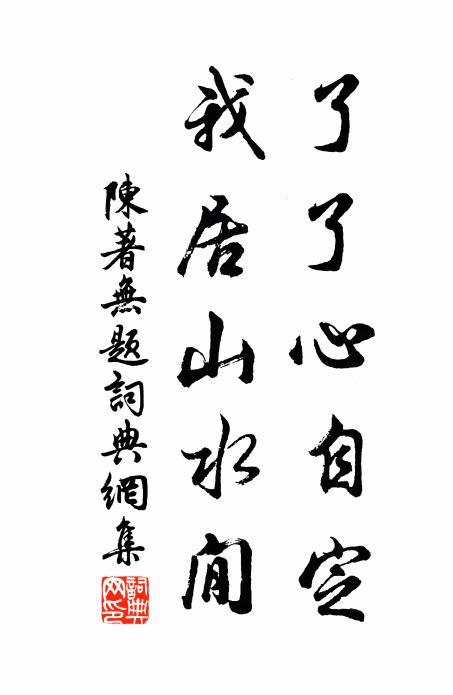 了了心自定
我居山水間
陳著無題詞典網集
詞典網印